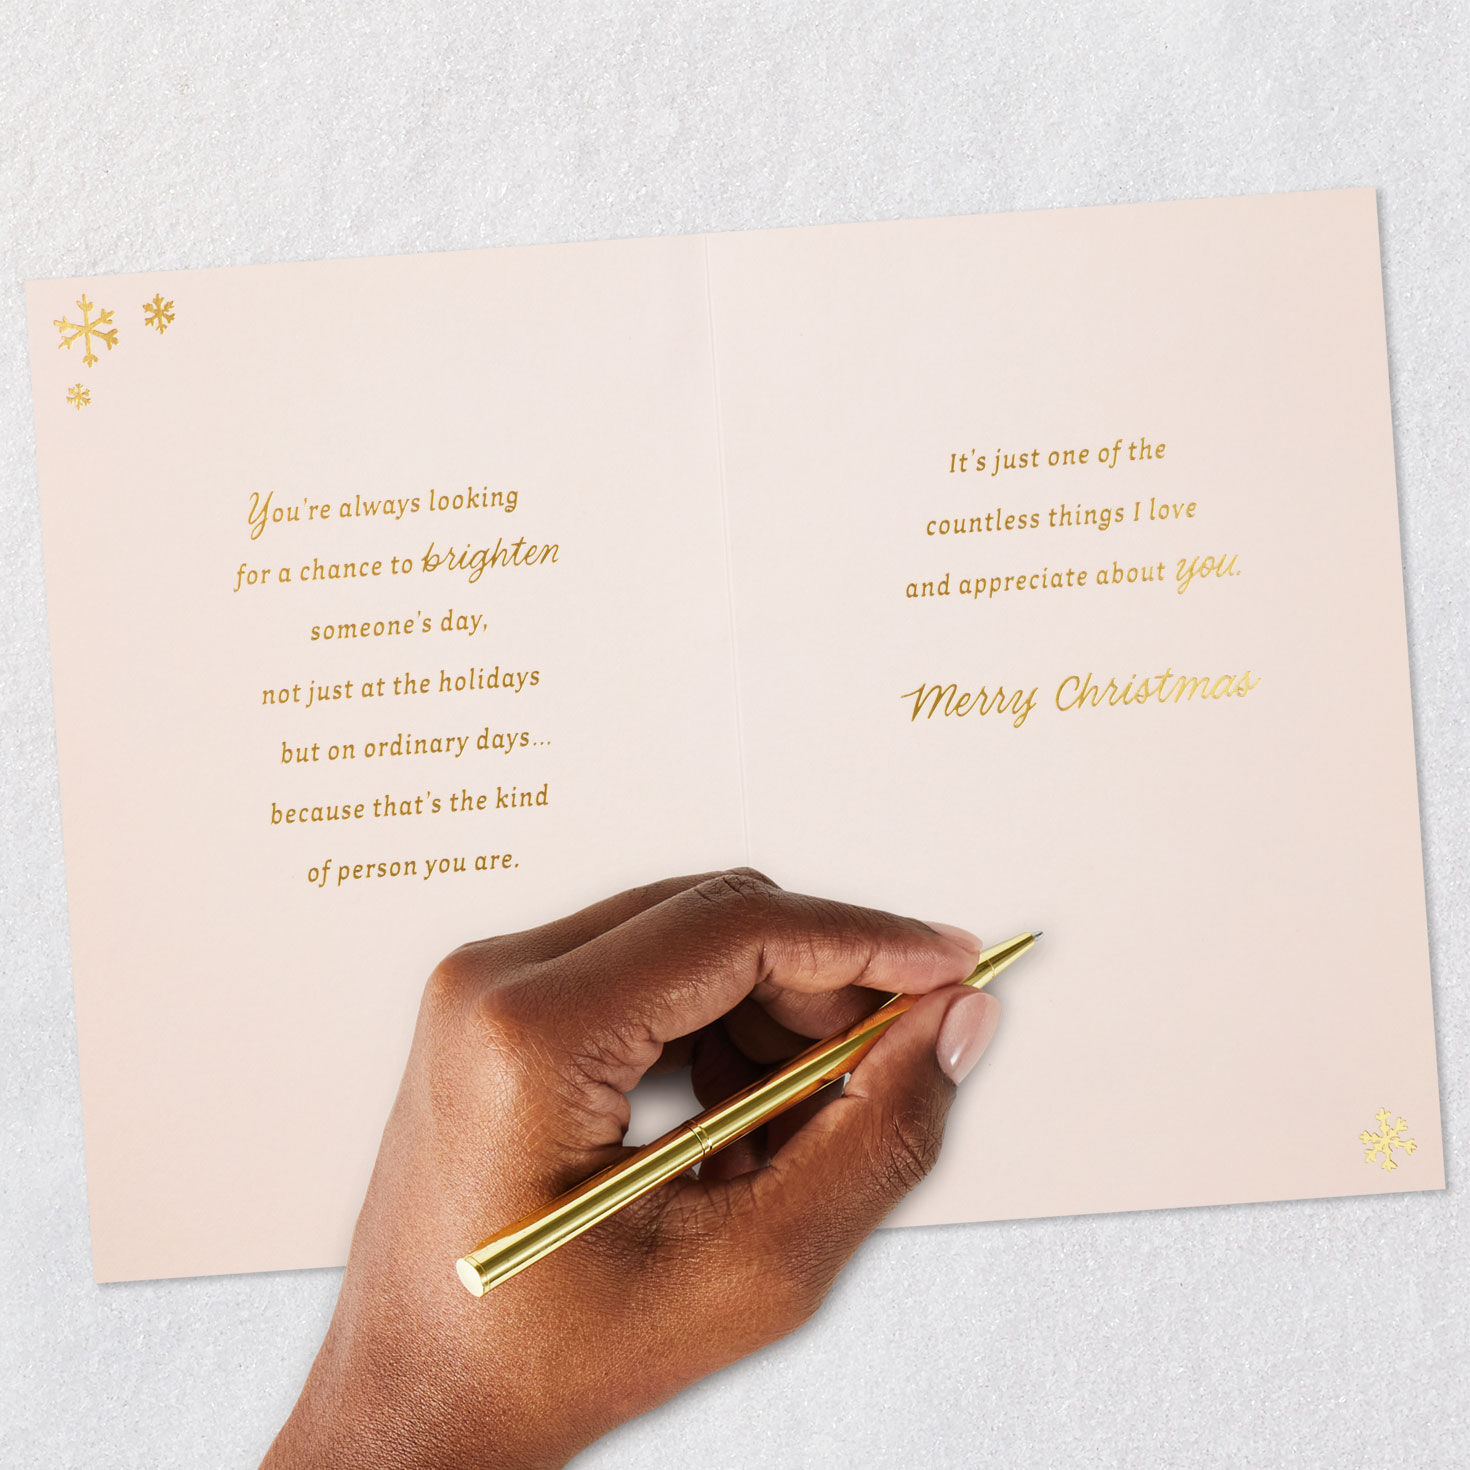 You're always looking
for a chance to brighten
someone's day,
not just at the holidays
but on ordinary days...
because that's the kind
of person you are.
It's just one of the
countless things I love
and appreciate about you.
Merry Christmas